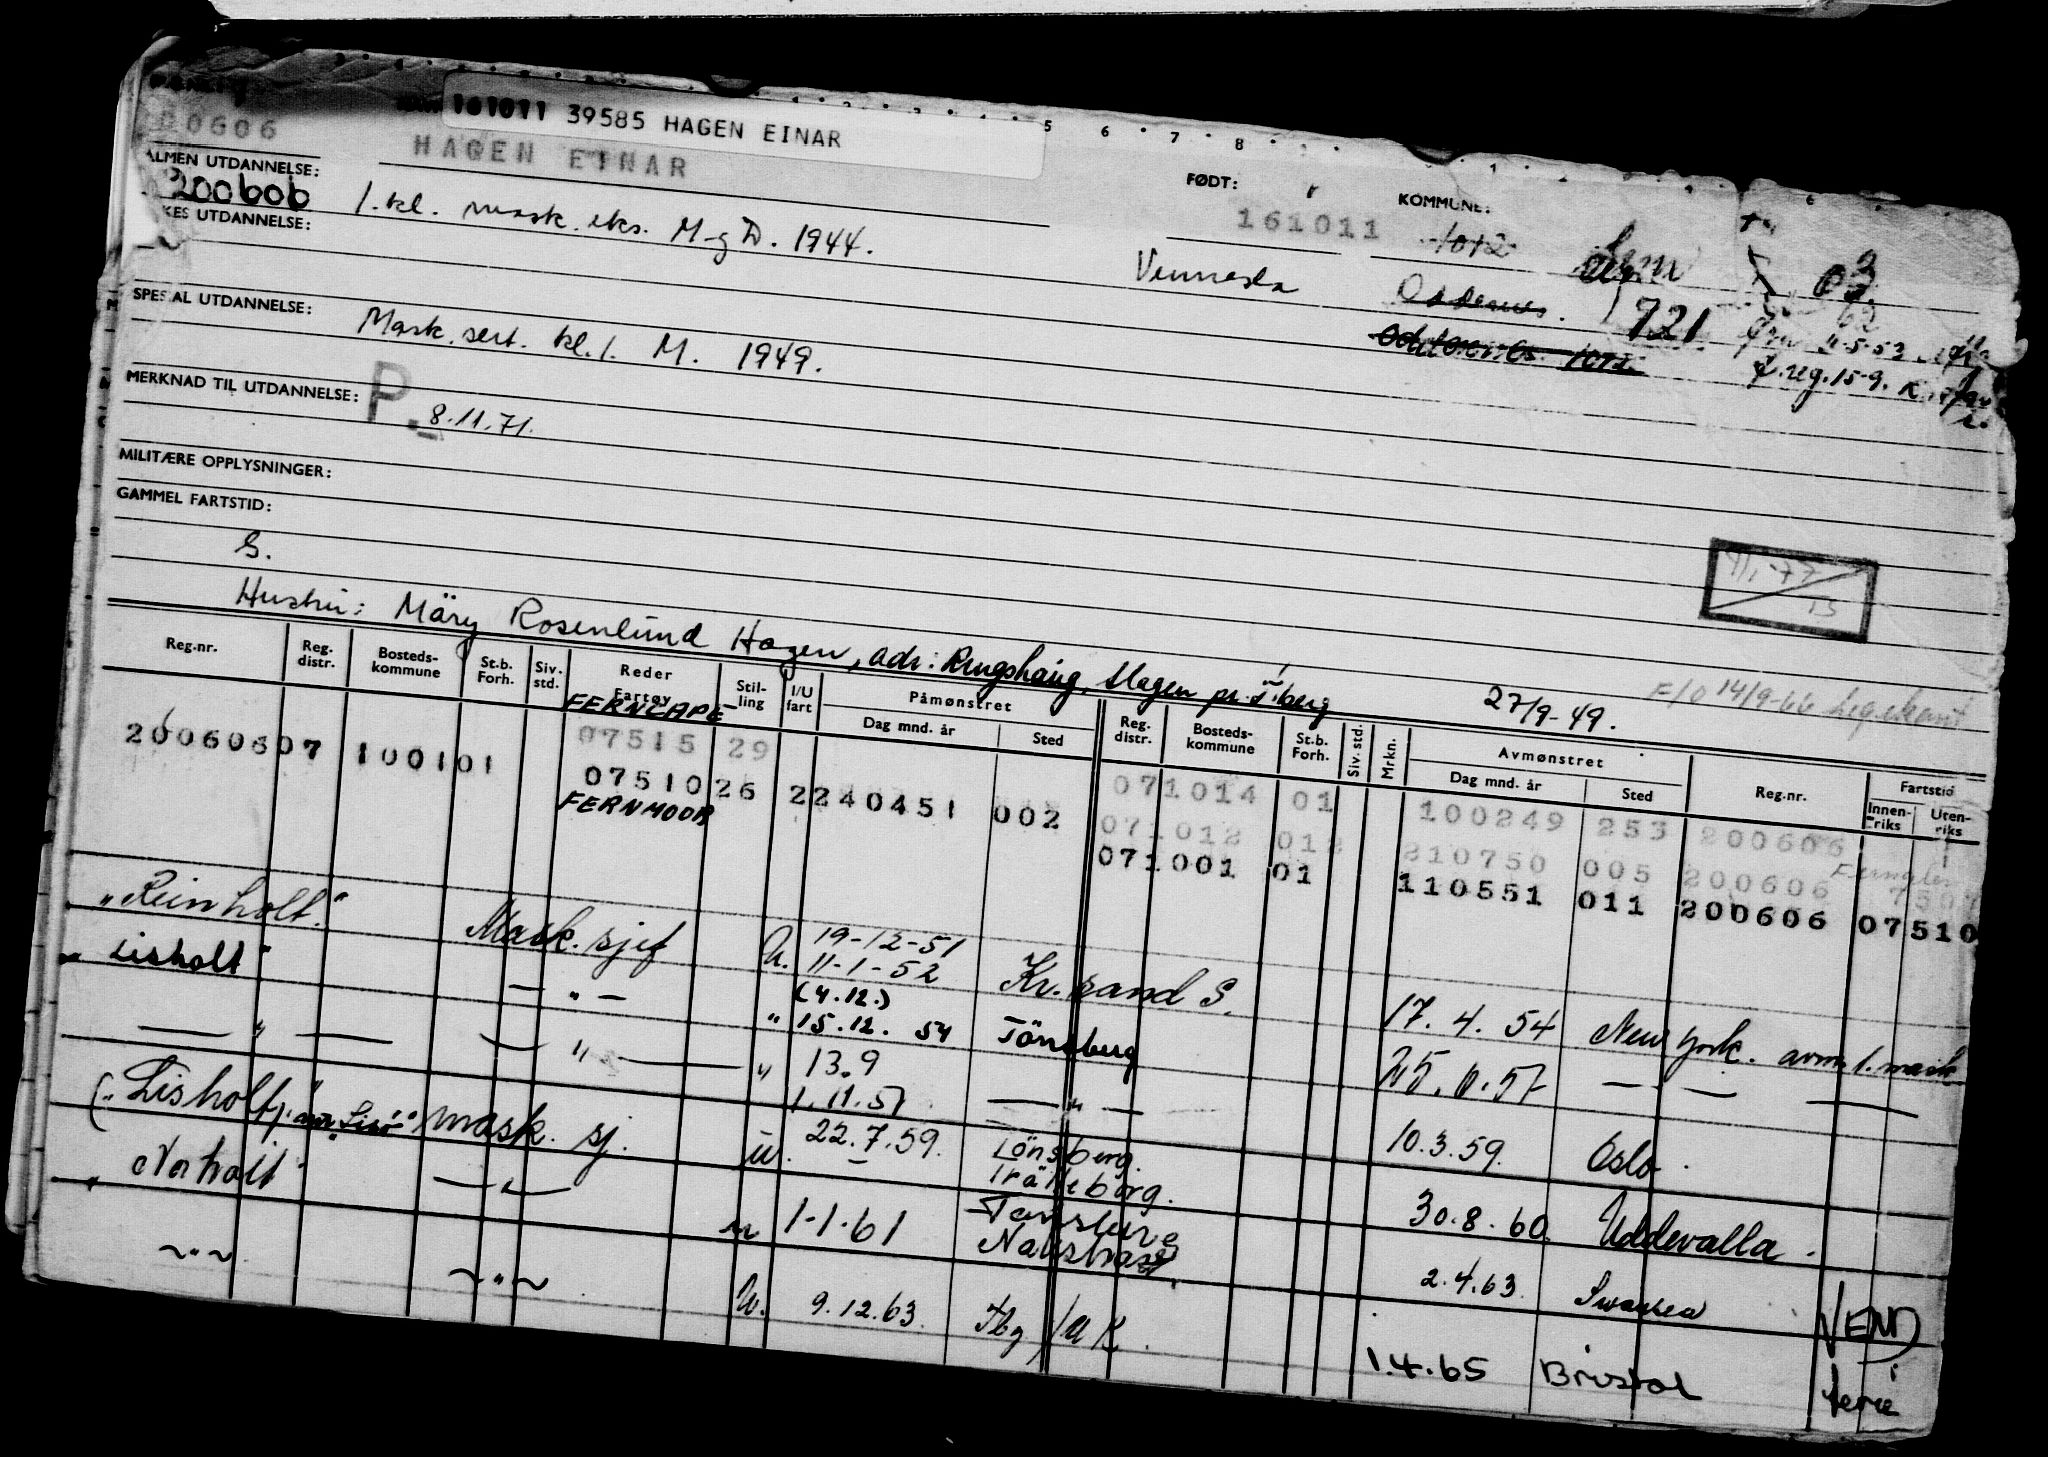 161011 39585 HAGEN EINAR
HAGEN EINAR
ALMEN UTDANNELSE:
200606
FØDT:
161011
KOMMUNE:
1012
Sem
03
1. kl. mask. eks. M-g D. 1944.
UTDANNELSE:
Vennesla
Oddernes.
721
Oddernes 1012
SPESIAL UTDANNELSE:
Mask. sert. kl. 1. M. 1949.
MERKNAD TIL UTDANNELSE:
P. 8.11.71.
MILITÆRE OPPLYSNINGER:
GAMMEL FARTSTID:
S.
Hustru: Märy Rosenlund Hagen, adr: Ringshaug, Slagen pr. T.berg 27/9-49.
F/O 14/9-66
Reg.nr. Reg. distr. Bosteds-kommune St.b. Forh. Siv. std. Reder Fartøy Stil-ling I/U fart Påmønstret Dag mnd. år Sted Reg. distr. Bosteds-kommune St.b. Forh. Siv. std. Mrkn. Avmønstret Dag mnd. år Sted Reg.nr. Fartstid Innen-riks Uten-riks
FERNCAPE
07515 29 071014 01 100249 253 200606
20060607 100101 07510 26 2240451 002 071012 012 210750 005 200606
FERNMOOR 071001 01 110551 011 200606 07510
"Reinholt." Mask. sjef U. 19-12-51
11-1-52 Kr. sand S. 17. 4. 54 New York. avm. 1. mask
" Lisholt " — " — " (4.12.)
15.12. 54 Tönsberg
— " — — " — " 13.9
1.11.57 — " — 10.3.59. Oslo.
(" Lisholt " mask. sj. u. 22.7.59. Tönsberg.
Trälleborg. 30.8.60. Uddevalla.
" Norholt " — " — u 1-1-61 Tønsberg
2.4.63. Swansea
~ " ~ ~ " ~ U. 9.12.63 Tbg /U K. 1.4.65 Bristol ferie